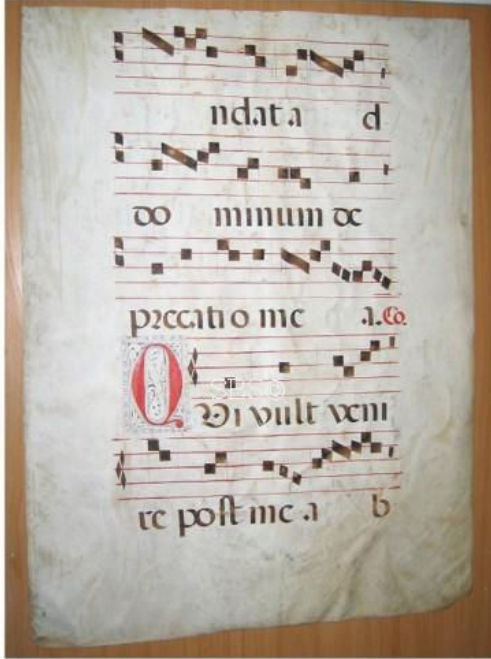 ndata d
do minum de
precatio me a. Co.
Q Vi vult veni
re post me a b